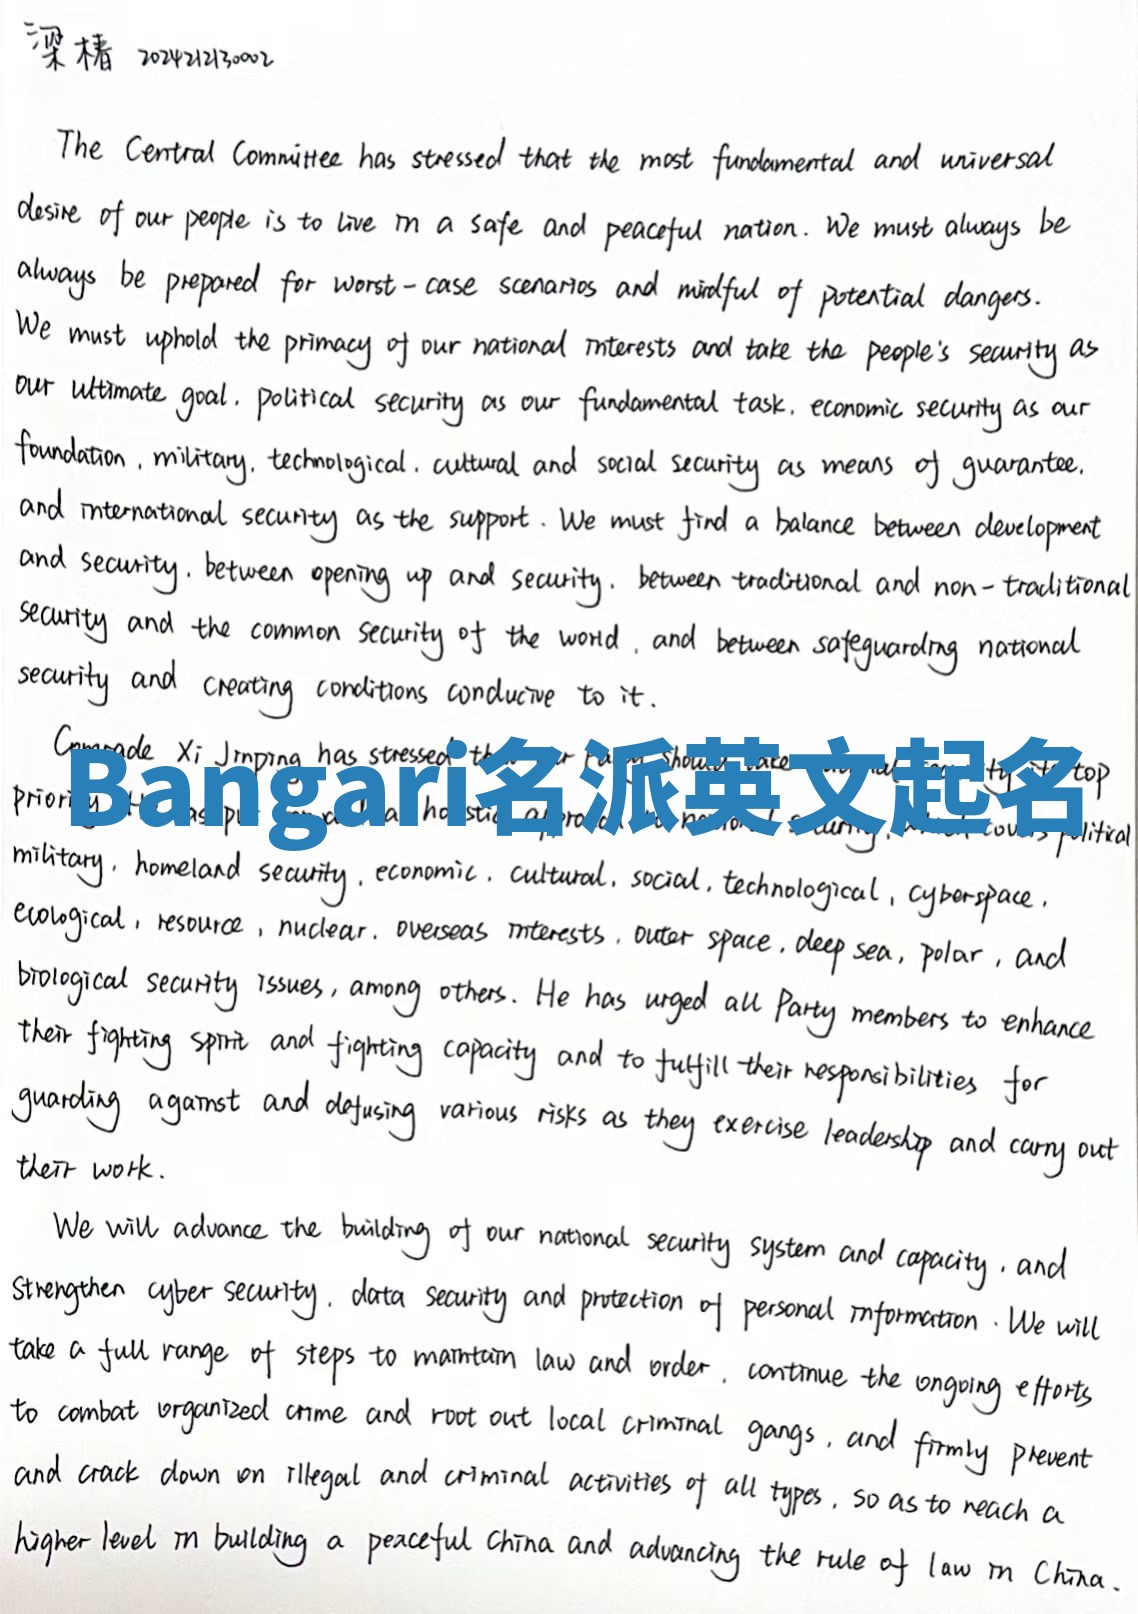 梁椿 2024212130002
The Central Committee has stressed that the most fundamental and universal
desire of our people is to live in a safe and peaceful nation. We must always be
always be prepared for worst-case scenarios and mindful of potential dangers.
We must uphold the primacy of our national interests and take the people's security as
our ultimate goal, political security as our fundamental task, economic security as our
foundation, military, technological, cultural and social security as means of guarantee,
and international security as the support. We must find a balance between development
and security, between opening up and security, between traditional and non-traditional
security and the common security of the world, and between safeguarding national
security and creating conditions conducive to it.
Comrade Xi Jinping has stressed top
Bangari名派英文起名
covers political
military, homeland security, economic, cultural, social, technological, cyberspace,
ecological, resource, nuclear, overseas interests, outer space, deep sea, polar, and
biological security issues, among others. He has urged all Party members to enhance
their fighting spirit and fighting capacity and to fulfill their responsibilities for
guarding against and defusing various risks as they exercise leadership and carry out
their work.
We will advance the building of our national security system and capacity, and
strengthen cyber security, data security and protection of personal information. We will
take a full range of steps to maintain law and order, continue the ongoing efforts
to combat organized crime and root out local criminal gangs, and firmly prevent
and crack down on illegal and criminal activities of all types, so as to reach a
higher level in building a peaceful China and advancing the rule of law in China.